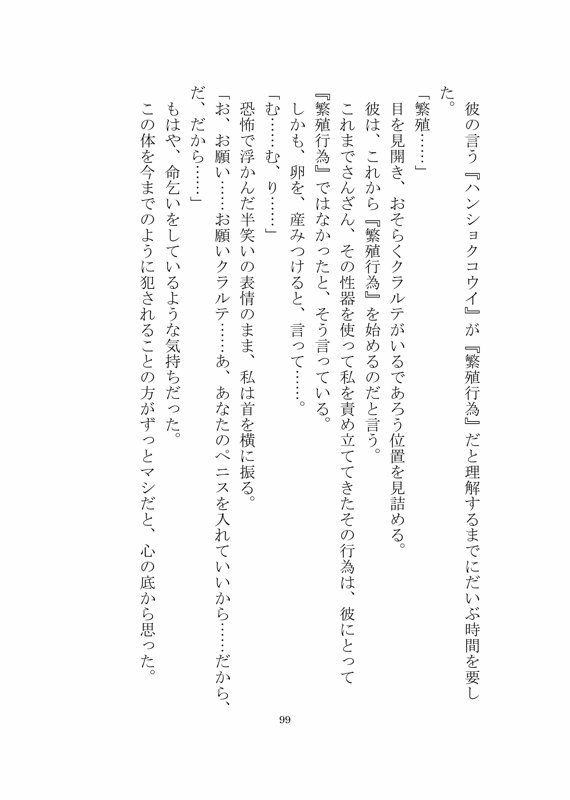 彼の言う『ハンショクコウイ』が『繁殖行為』だと理解するまでにだいぶ時間を要し
た。
「繁殖……」
目を見開き、おそらくクラルテがいるであろう位置を見詰める。
彼は、これから『繁殖行為』を始めるのだと言う。
これまでさんざん、その性器を使って私を責め立ててきたその行為は、彼にとって
『繁殖行為』ではなかったと、そう言っている。
しかも、卵を、産みつけると、言って……。
「む……む、り……」
恐怖で浮かんだ半笑いの表情のまま、私は首を横に振る。
「お、お願い……お願いクラルテ……あ、あなたのペニスを入れていいから……だから、
だ、だから……」
もはや、命乞いをしているような気持ちだった。
この体を今までのように犯されることの方がずっとマシだと、心の底から思った。
99